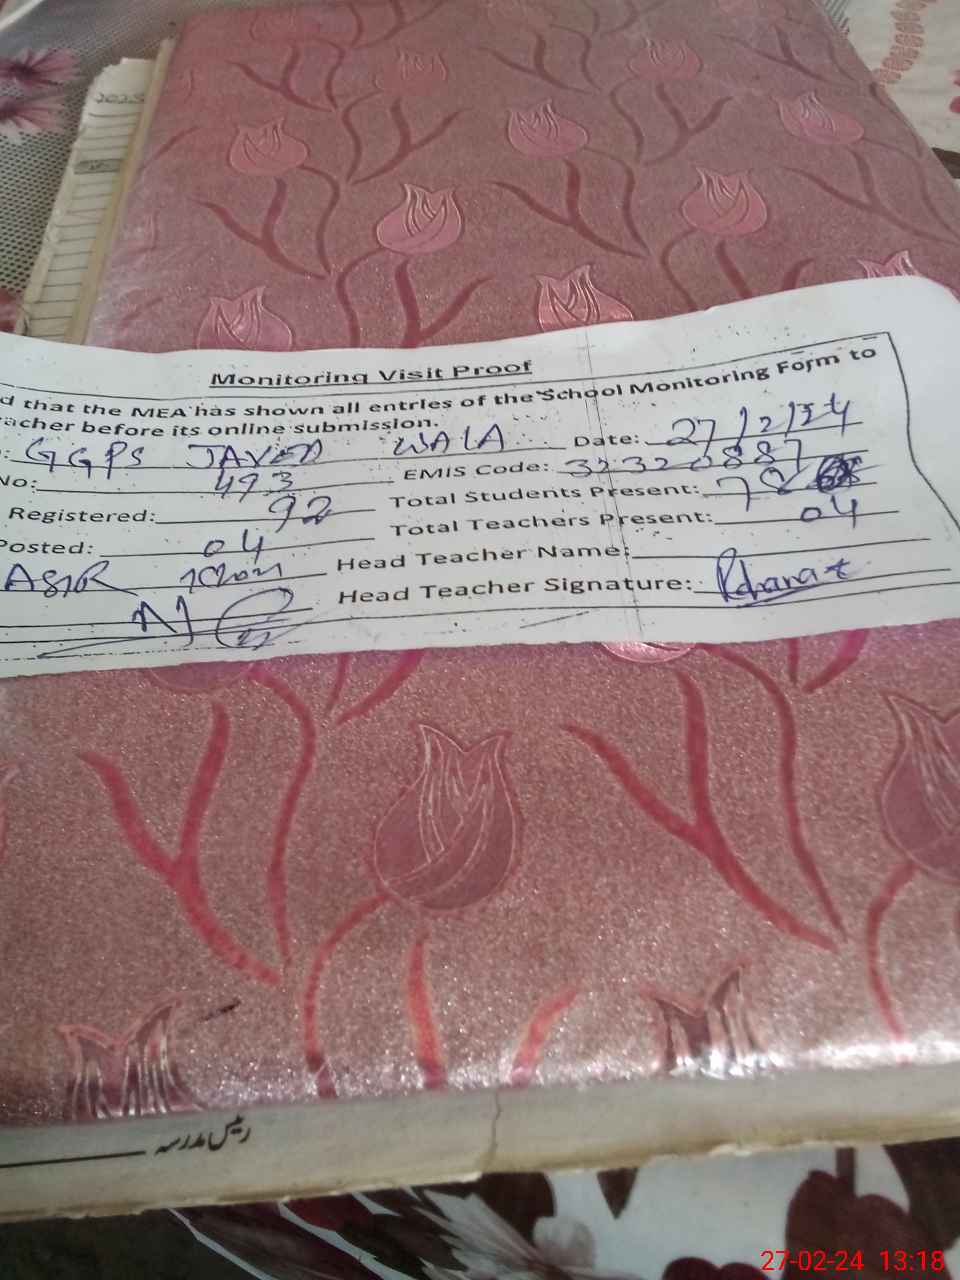 2025
Monitoring Visit Proof
d that the MEA has shown all entries of the School Monitoring Form to
acher before its online submission.
: GGPS JAVED WALA Date: 27/2/24
No: 493 EMIS Code: 32320887
Registered: 92 Total Students Present: 78
Posted: 04 Total Teachers Present: 04
ASIR Khan Head Teacher Name:
Head Teacher Signature:
رئیس مدرسہ
27-02-24 13:18